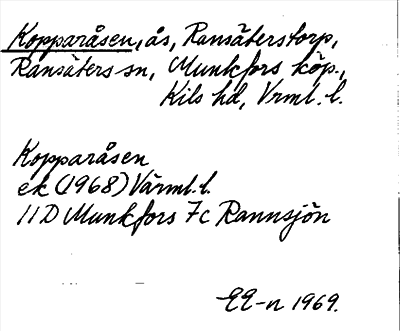 Kopparåsen, ås, Ransäterstorp,
Ransäters sn, Munkfors köp.,
Kils hd, Vrml. l.
Kopparåsen
ek (1968) Värml. l.
11D Munkfors 7c Rannsjön
EE-n 1969.